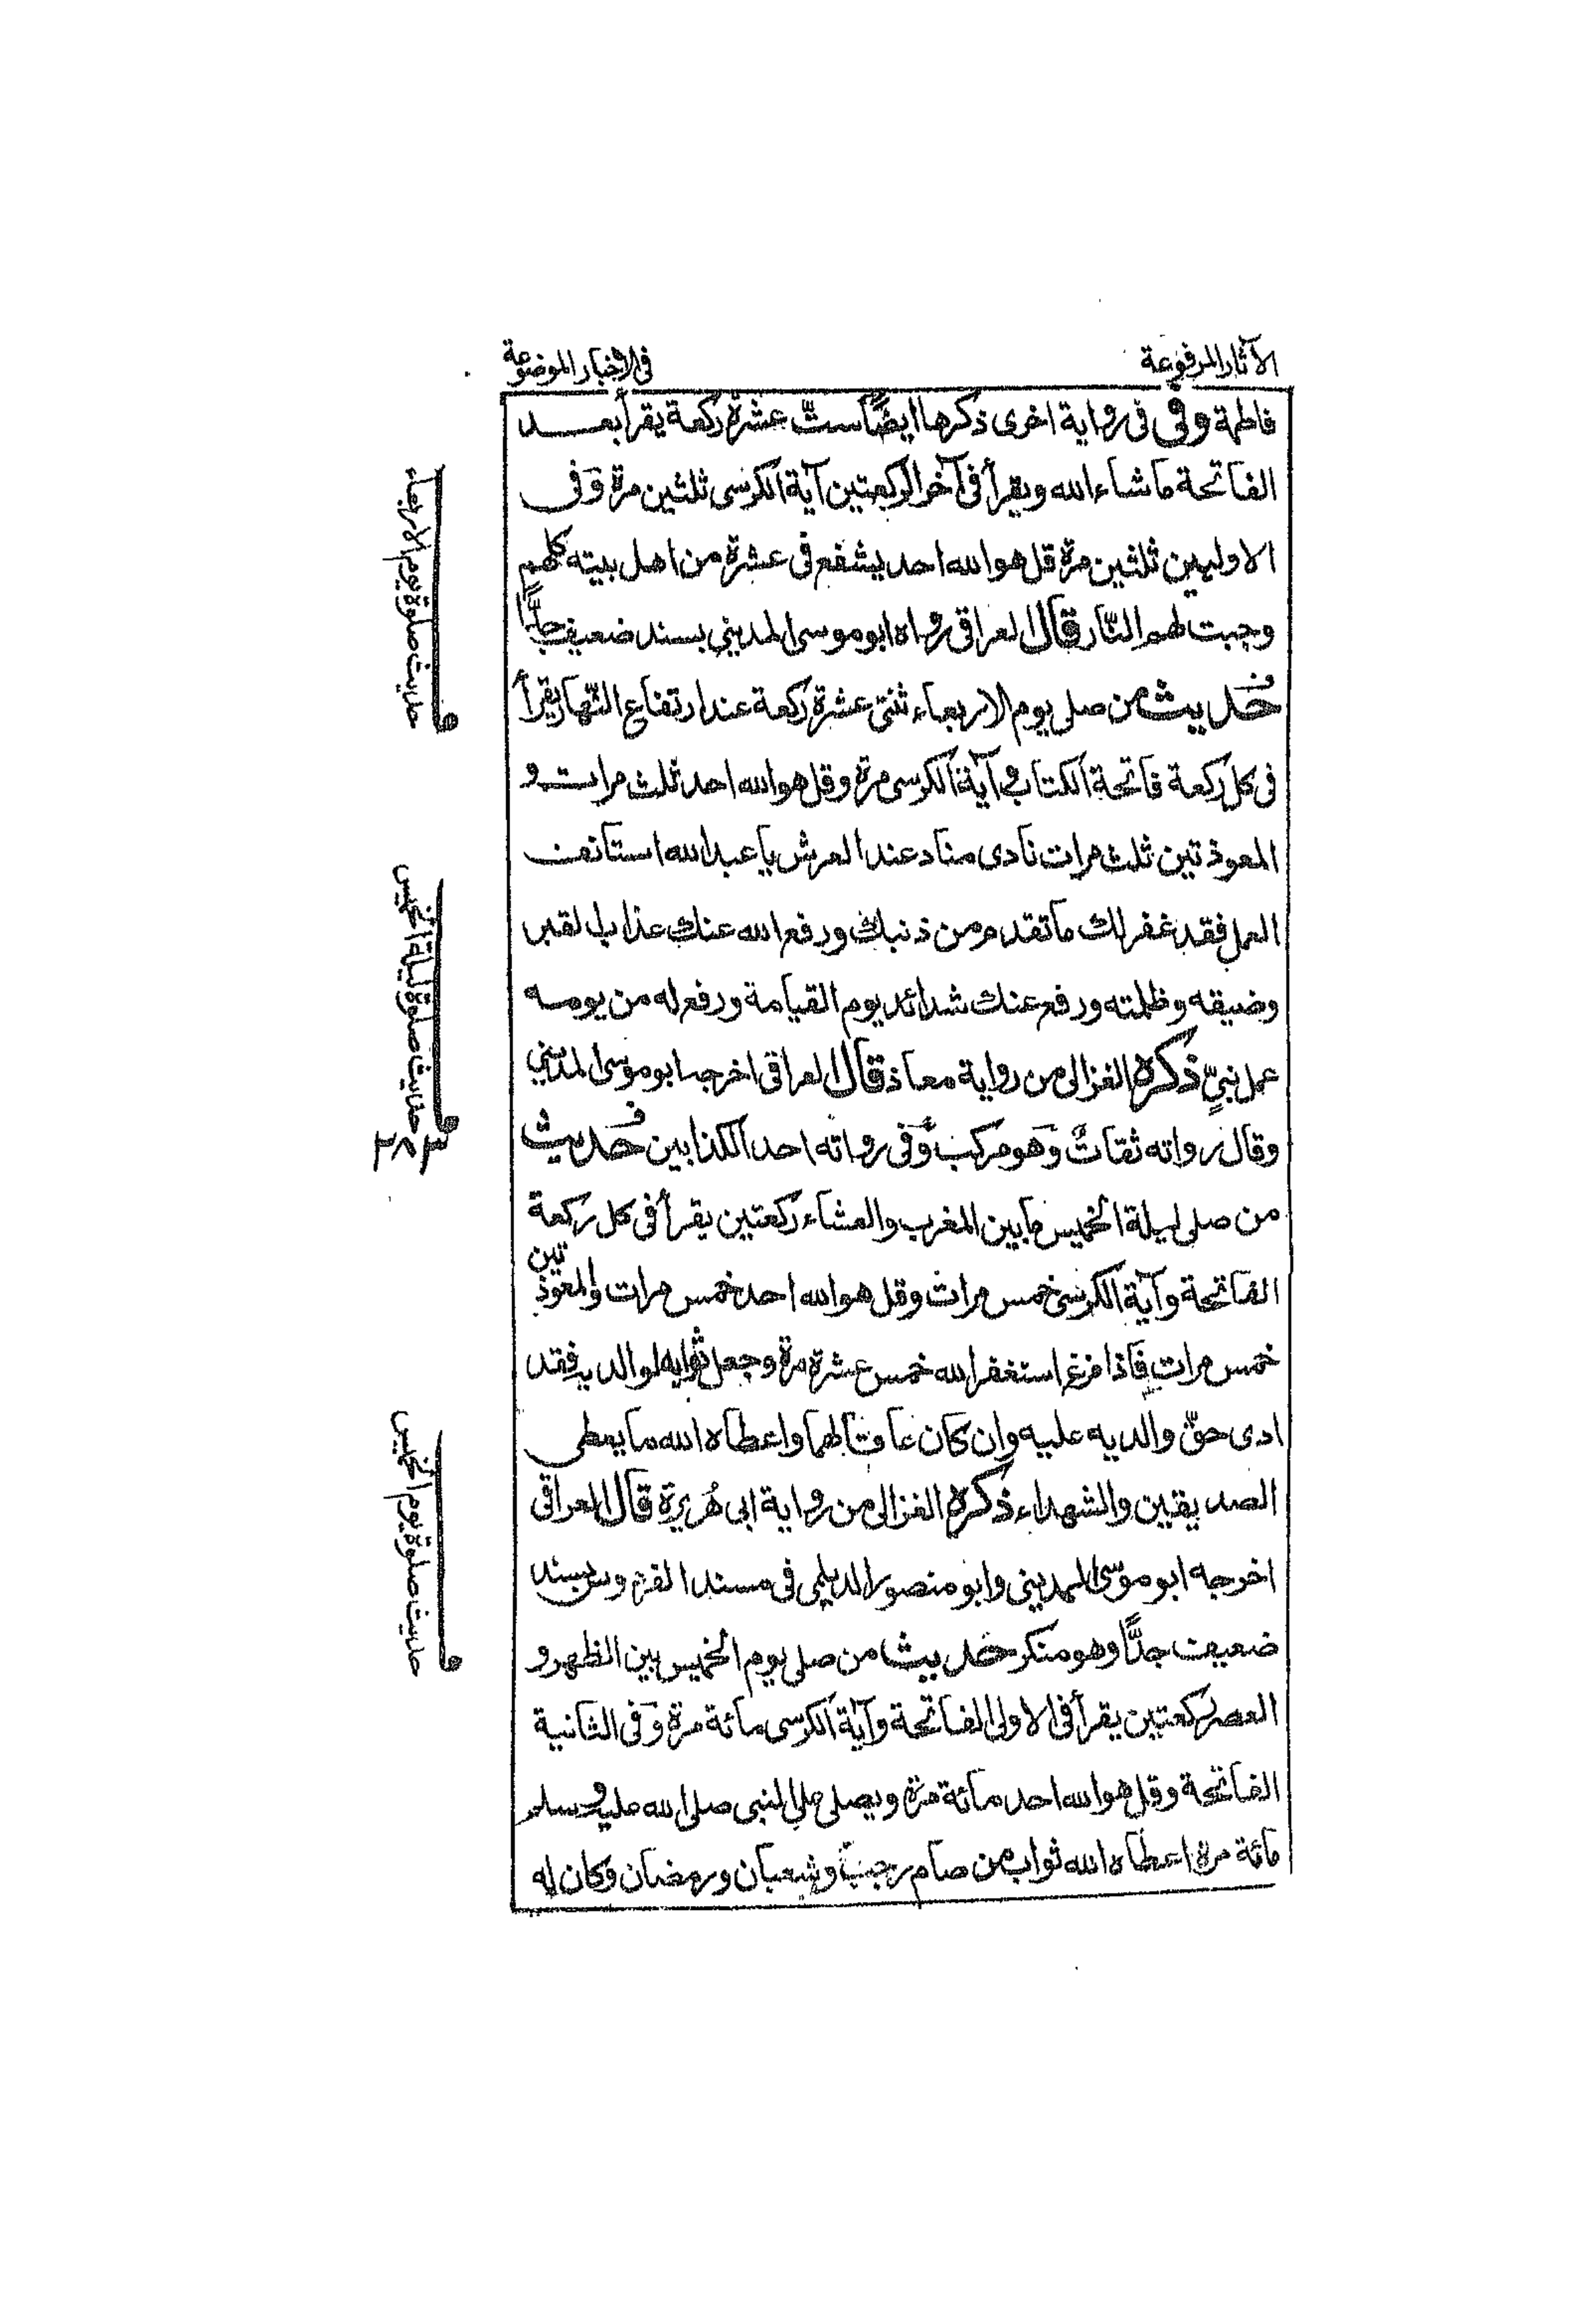 الآثار المرفوعة
فى الاخبار الموضوعة
فاطمة وفى فى رواية اخرى ذكرها ايضًا ستّ عشرة ركعة يقرأ بعد
الفاتحة ماشاء الله ويقرأ فى آخر الركعتين آية الكرسى ثلثين مرة وفى
الاوليين ثلثين مرة قل هو الله احد يشفع فى عشرة من اهل بيته كلهم
وجبت لهم النّار قال العراقى رواه ابو موسى المديني بسند ضعيف جدًّا
حديث من صلى يوم الاربعاء ثنتى عشرة ركعة عند ارتفاع النّهار يقرأ
فى كل ركعة فاتحة الكتاب وآية الكرسى مرة وقل هو الله احد ثلث مرات و
المعوذتين ثلث مرات نادى مناد عند العرش يا عبد الله استانف
العمل فقد غفر لك ما تقدم من ذنبك ورفع الله عنك عذاب القبر
وضيقه وظلمته ورفع عنك شدائد يوم القيامة ورفع له من يومه
عمل نبيٍّ ذكره الغزالى من رواية معاذ قال العراقى اخرجه ابو موسى المديني
وقال رواته ثقات وهو مركب وفى رواته احد الكذابين حديث
من صلى ليلة الخميس ما بين المغرب والعشاء ركعتين يقرأ فى كل ركعة
الفاتحة وآية الكرسى خمس مرات وقل هو الله احد خمس مرات والمعوذتين
خمس مرات فاذا فرغ استغفر الله خمس عشرة مرة وجعل ثوابه لوالديه فقد
ادى حقّ والديه عليه وان كان عاقا لهما واعطاه الله ما يعطى
الصديقين والشهداء ذكره الغزالى من رواية ابى هُريرة قال العراقى
اخرجه ابو موسى المديني وابو منصور الديلمى فى مسند الفردوس بسند
ضعيف جدًّا وهو منكر حديث من صلى يوم الخميس بين الظهر و
العصر ركعتين يقرأ فى الاولى الفاتحة وآية الكرسى مائة مرة وفى الثانية
الفاتحة وقل هو الله احد مائة مرة ويصلى على النبى صلى الله عليه وسلم
مائة مرة اعطاه الله ثواب من صام رجب وشعبان ورمضان وكان له
حديث صلوة يوم الاربعاء
حديث صلوة ليلة الخميس
حديث صلوة يوم الخميس